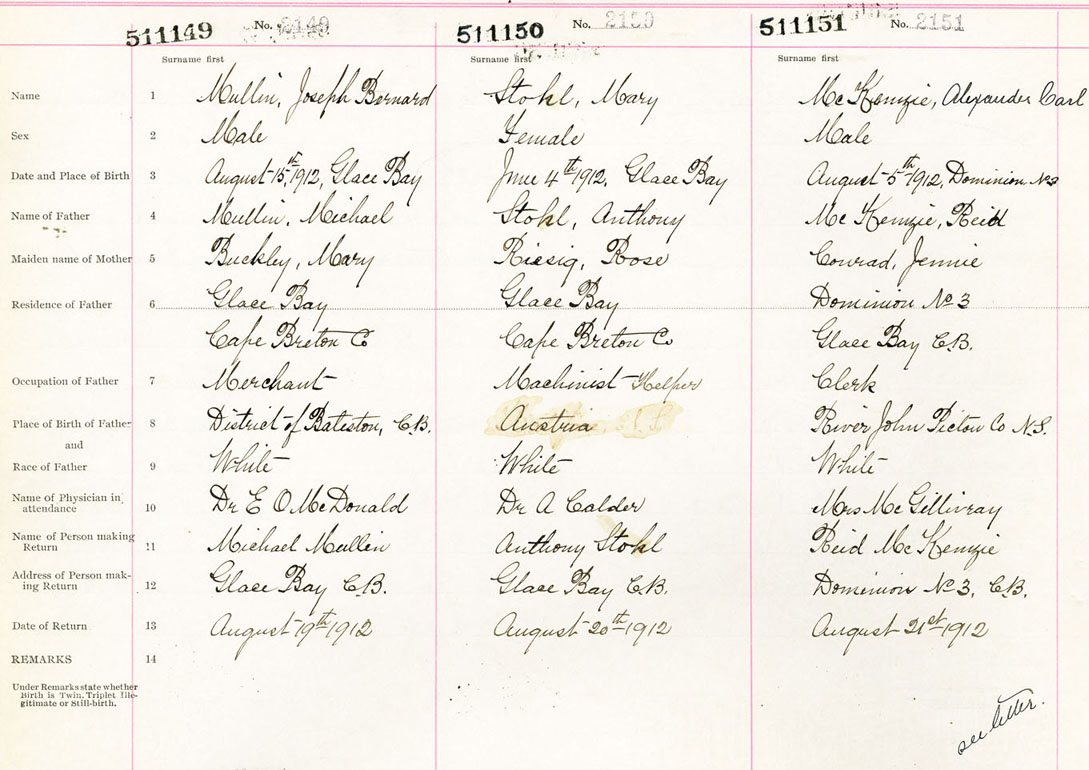 511149 No. 2149 511150 No. 2150 511151 No. 2151
Surname first Surname first Surname first
Name 1 Mullin, Joseph Bernard Stohl, Mary McKenzie, Alexander Carl
Sex 2 Male Female Male
Date and Place of Birth 3 August 15th, 1912, Glace Bay June 4th 1912, Glace Bay August 5th 1912, Dominion No 3
Name of Father 4 Mullin, Michael Stohl, Anthony McKenzie, Reid
Maiden name of Mother 5 Buckley, Mary Riesig, Rose Conrad, Jennie
Residence of Father 6 Glace Bay Glace Bay Dominion No 3
Cape Breton Co Cape Breton Co Glace Bay C.B.
Occupation of Father 7 Merchant Machinist Helper Clerk
Place of Birth of Father 8 District of Bateston, C.B. Austria River John Pictou Co N.S.
and
Race of Father 9 White White White
Name of Physician in
attendance 10 Dr E O McDonald Dr A Calder Mrs McGillivray
Name of Person making
Return 11 Michael Mullin Anthony Stohl Reid McKenzie
Address of Person mak-
ing Return 12 Glace Bay C.B. Glace Bay C.B. Dominion No 3, C.B.
Date of Return 13 August 19th 1912 August 20th 1912 August 21st 1912
REMARKS 14
Under Remarks state whether
Birth is Twin, Triplet Ille-
gitimate or Still-birth.
see letter.